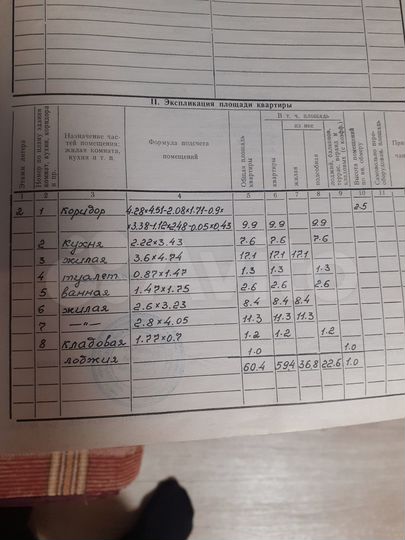 II. Экспликация площади квартиры
Этажи литера
Номер по плану здания комнат, кухни, коридора и пр.
Назначение час-
тей помещения:
жилая комната,
кухня и т. п.
Формула подсчета
помещений
Общая площадь квартиры
В т. ч. площадь
квартиры
из нее
жилая
подсобная
лоджий, балконов, террас, веранд и кладовых (с коэфф.)
Высота помещений по вн. обмеру
Самовольно пере- оборудован. площадь
1 2 3 4 5 6 7 8 9 10 11
2 1 коридор 4.28×4.51-2.08×1.71-0.9×
×3.38-1.12×2.48-0.05×0.43 9.9 9.9 9.9 2.5
2 кухня 2.22×3.43 7.6 7.6 7.6
3 жилая 3.6×4.74 17.1 17.1 17.1
4 туалет 0.87×1.47 1.3 1.3 1.3
5 ванная 1.47×1.75 2.6 2.6 2.6
6 жилая 2.6×3.23 8.4 8.4 8.4
7 —"— 2.8×4.05 11.3 11.3 11.3
8 кладовая 1.77×0.7 1.2 1.2 1.2
лоджия 1.0 1.0
60.4 59.4 36.8 22.6 1.0